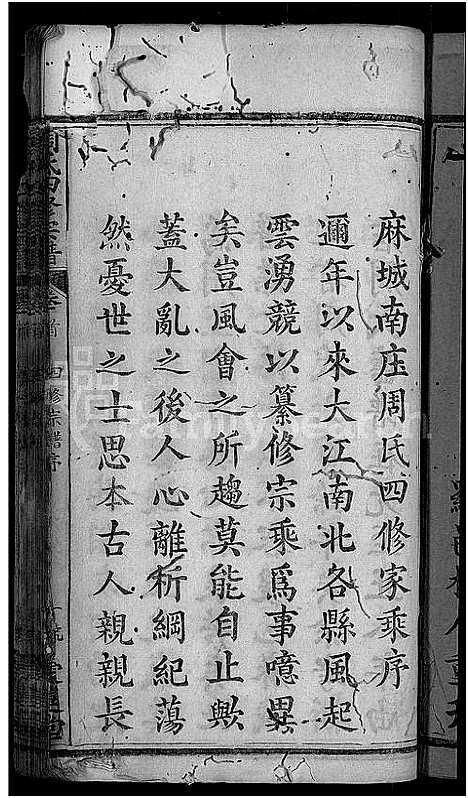 麻城南庄周氏四修家乘序
邇年以來大江南北各縣風起
雲湧競以纂修宗乘爲事噫異
矣豈風會之所趨莫能自止歟
蓋大亂之後人心離析綱紀蕩
然憂世之士思本古人親親長
四修宗譜序